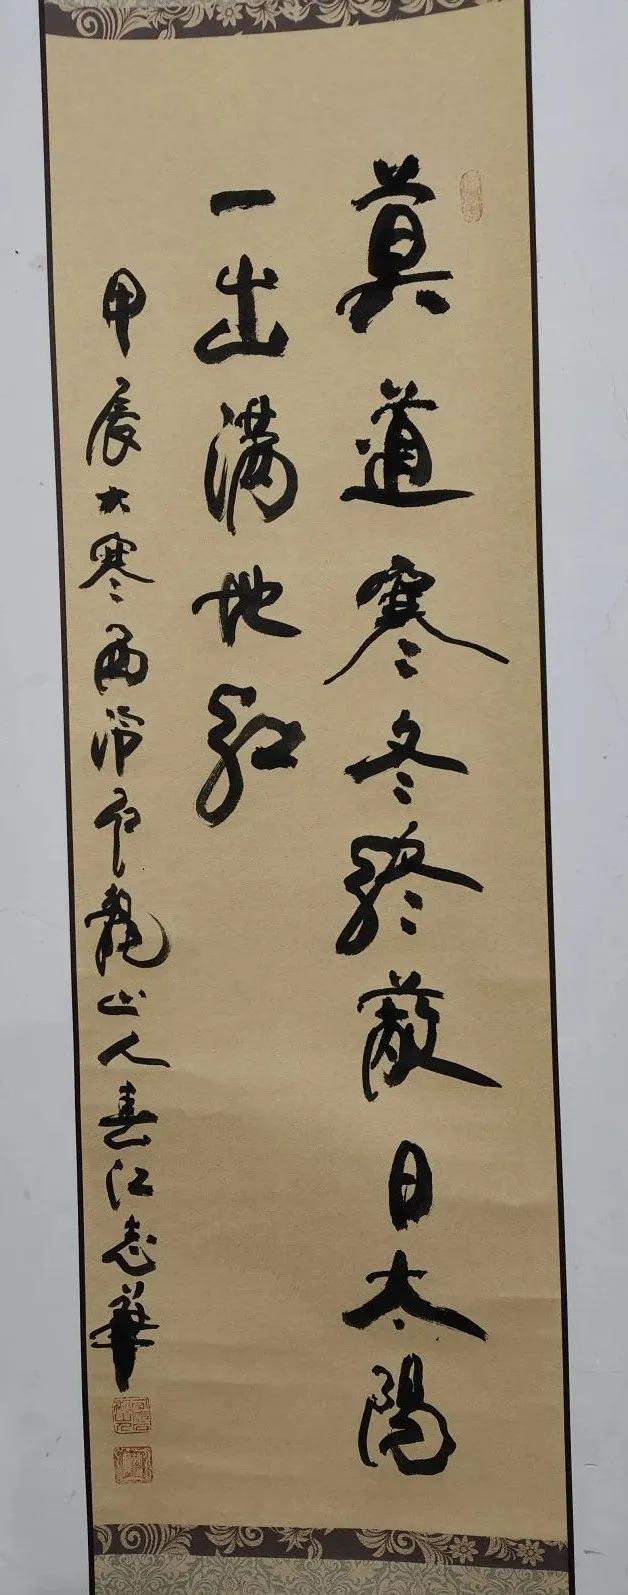 莫道寒冬終蔽日太陽
一出滿地紅
甲辰大寒龍山人江志華